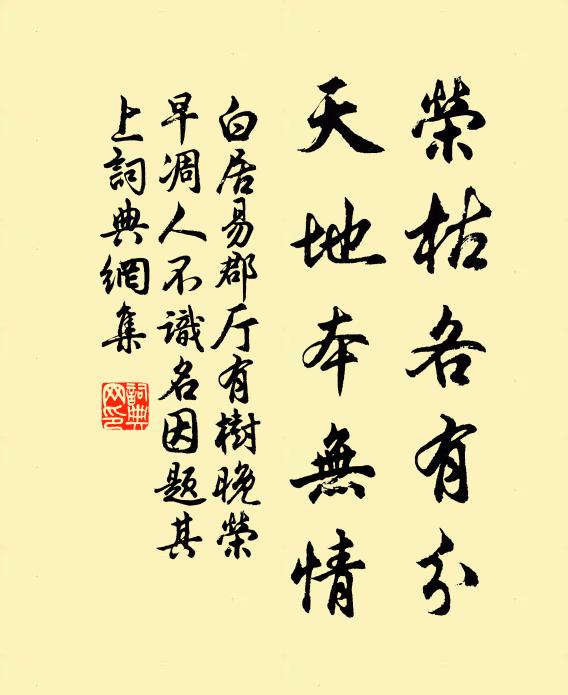 榮枯各有分
天地本無情
白居易郡厅有樹晚榮
早凋人不識名因题其
上詞典網集
詞典网印